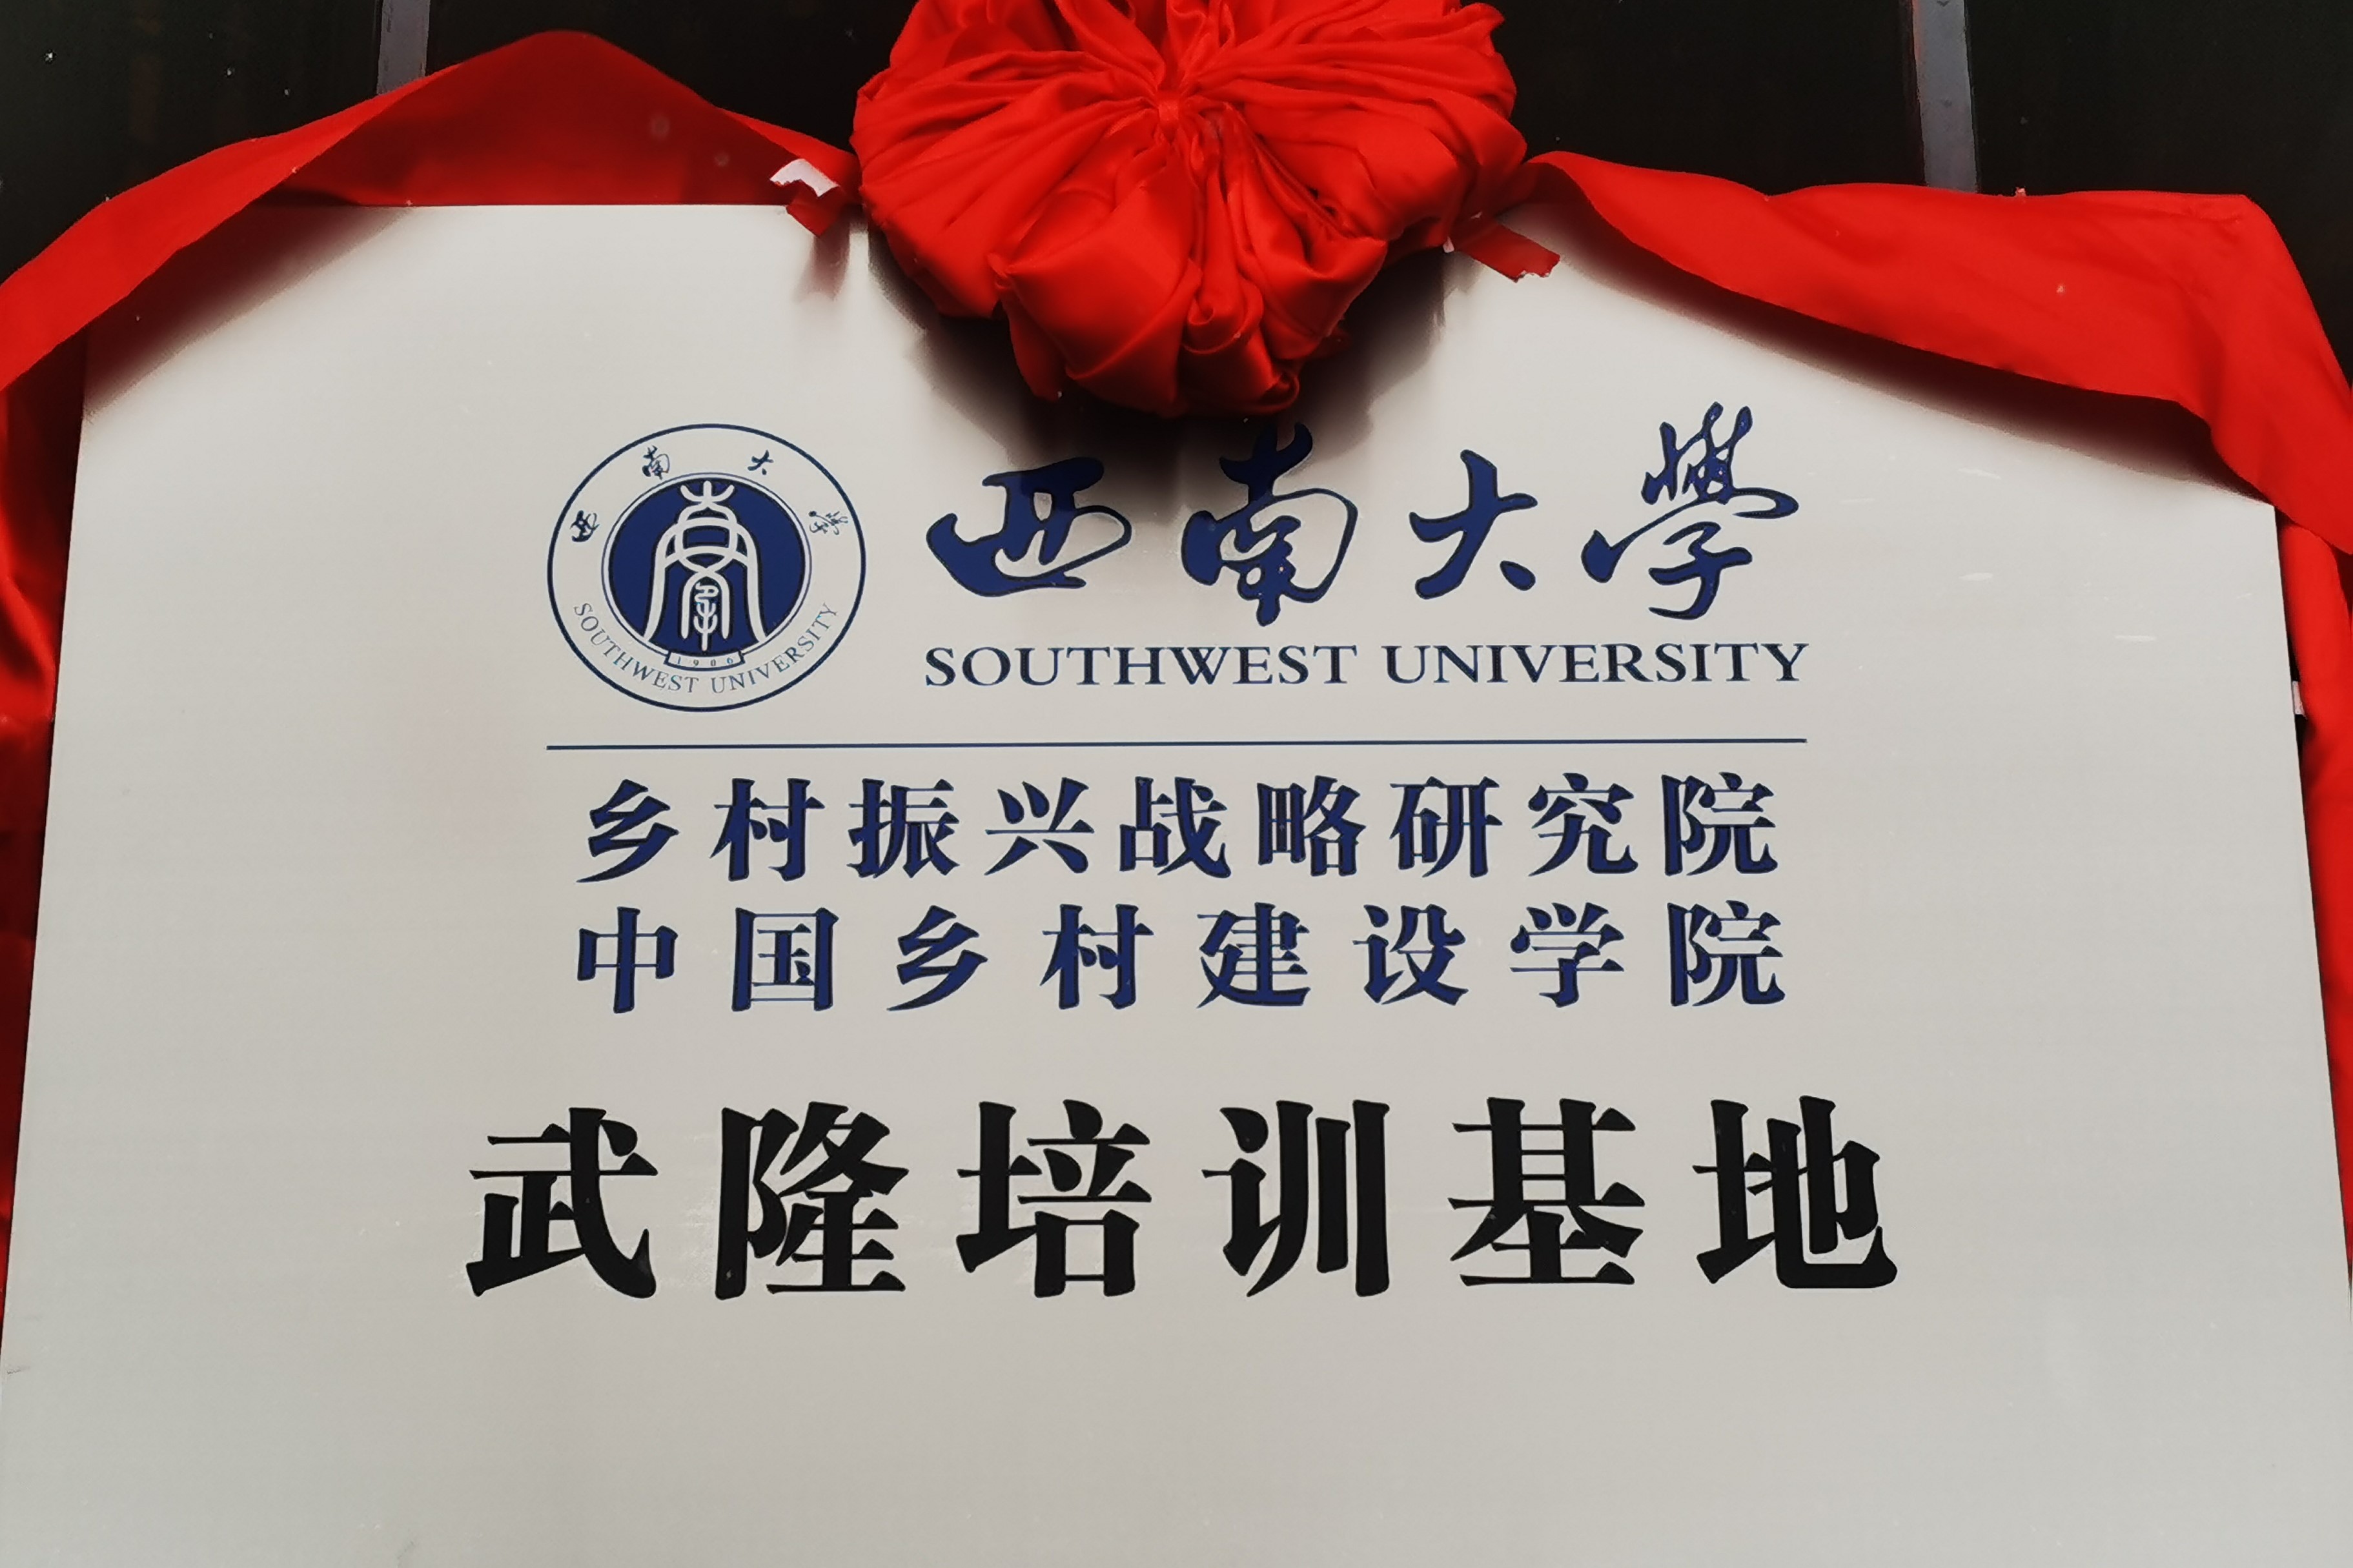 西南大學
SOUTHWEST UNIVERSITY
1906
西南大學
SOUTHWEST UNIVERSITY
乡村振兴战略研究院
中国乡村建设学院
武隆培训基地